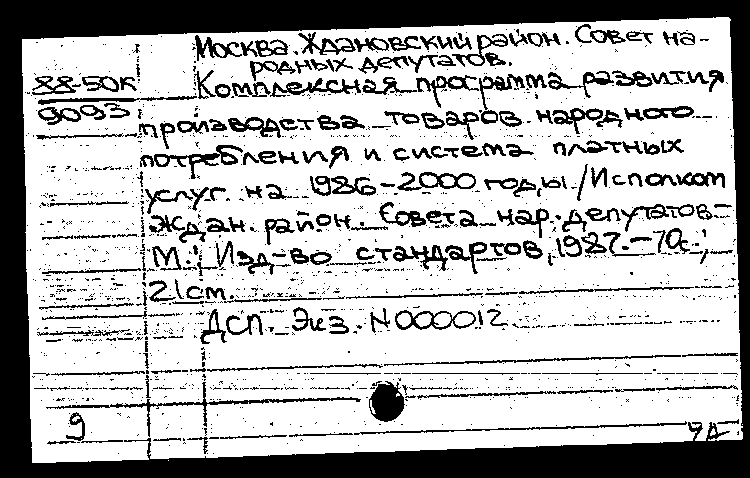 Москва. Ждановский район. Совет на-
родных депутатов.
88-50к
9093
Комплексная программа развития
производства товаров народного
потребления и система платных
услуг на 1986-2000 годы. /Исполком
Ждан. район. Совета нар. депутатов.-
М.: Изд-во стандартов, 1987.-70с.;
21см.
ДСП. Экз. N000012
9